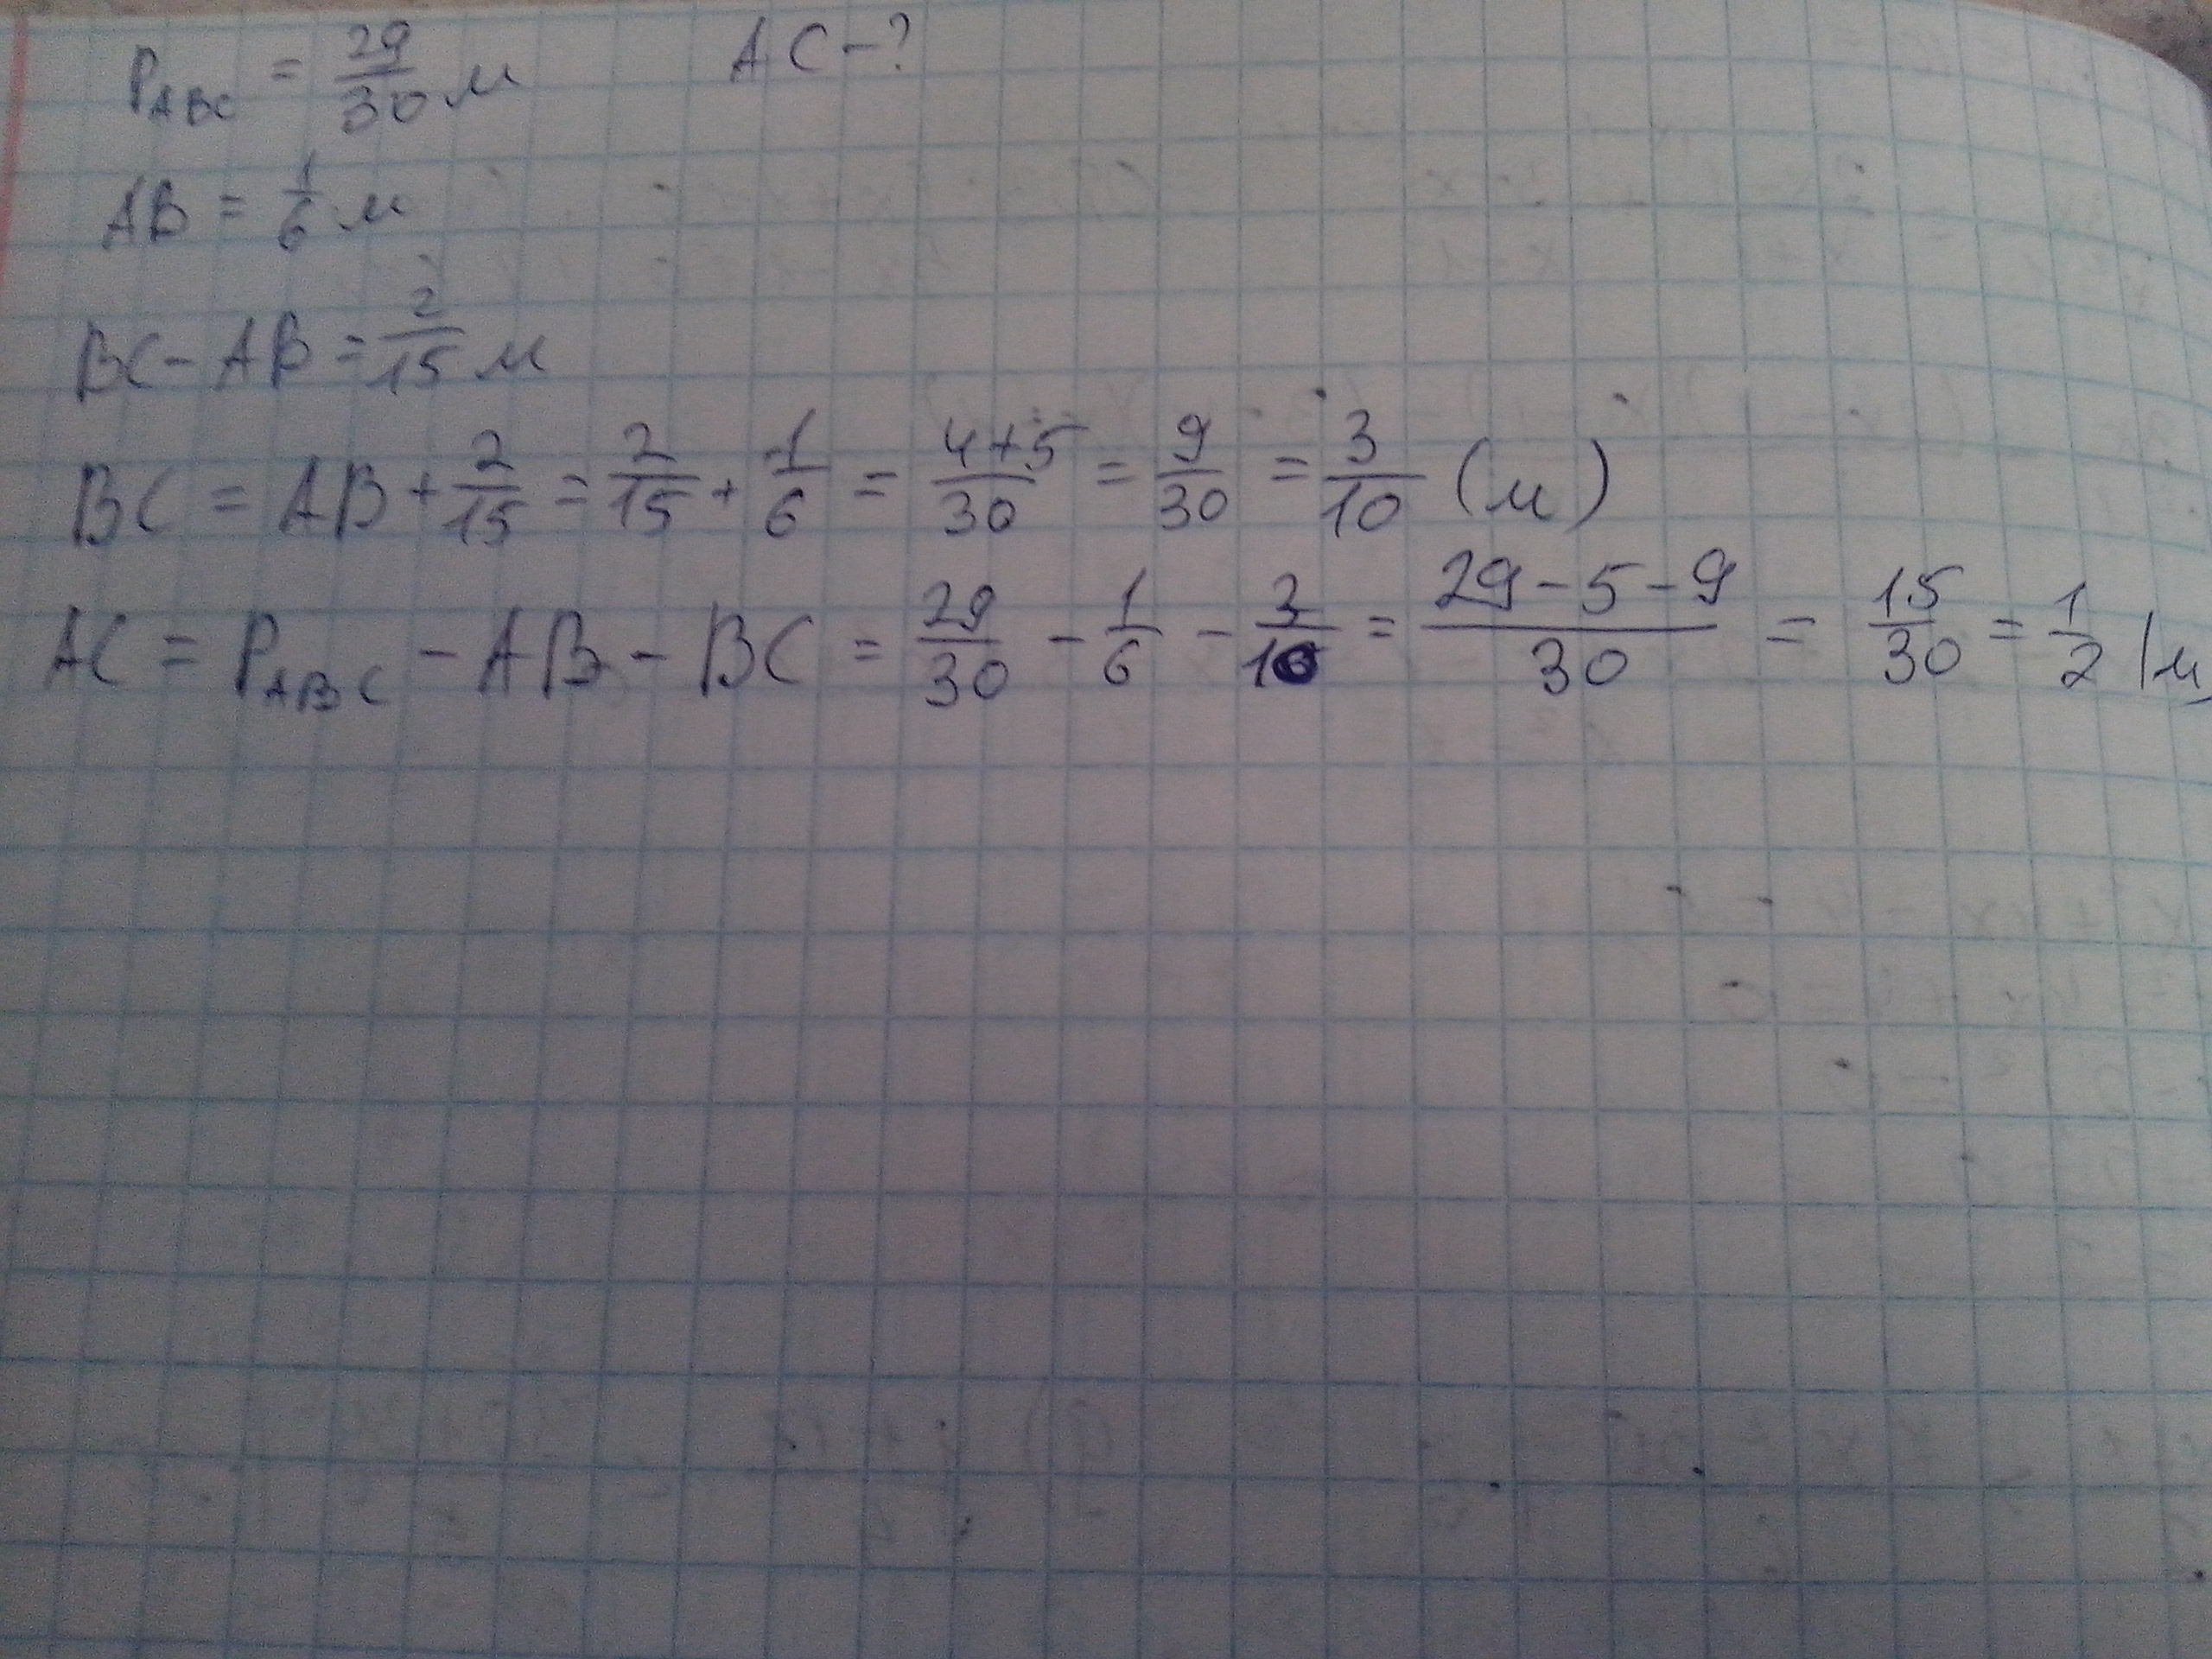 P_ABC = 29/30 м AC - ?
AB = 1/6 м
BC - AB = 2/15 м
BC = AB + 2/15 = 2/15 + 1/6 = (4+5)/30 = 9/30 = 3/10 (м)
AC = P_ABC - AB - BC = 29/30 - 1/6 - 3/10 = (29-5-9)/30 = 15/30 = 1/2 (м)